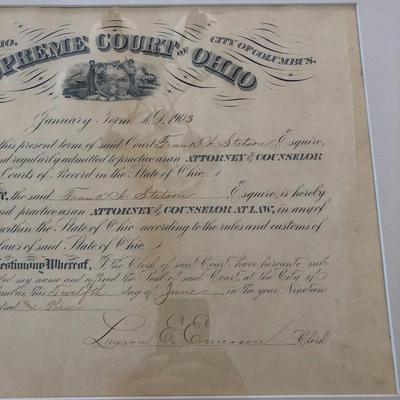 IO.
PREME COURT OF OHIO
CITY OF COLUMBUS.
January Term, A.D. 1903
this present term of said Court Frank H. Stetson, Esquire,
and regularly admitted to practice as an ATTORNEY and COUNSELOR
Courts of Record in the State of Ohio.
the said Frank H. Stetson, Esquire, is hereby
nd practice as an ATTORNEY and COUNSELOR AT LAW, in any of
within the State of Ohio according to the rules and customs of
laws of said State of Ohio.
estimony Whereof, I the Clerk of said Court have hereunto sub
bed my name and affixed the Seal of said Court at the City of
umbus this Twelfth day of June in the year Nineteen
dred and Three
Lawson E. Emerson Clerk